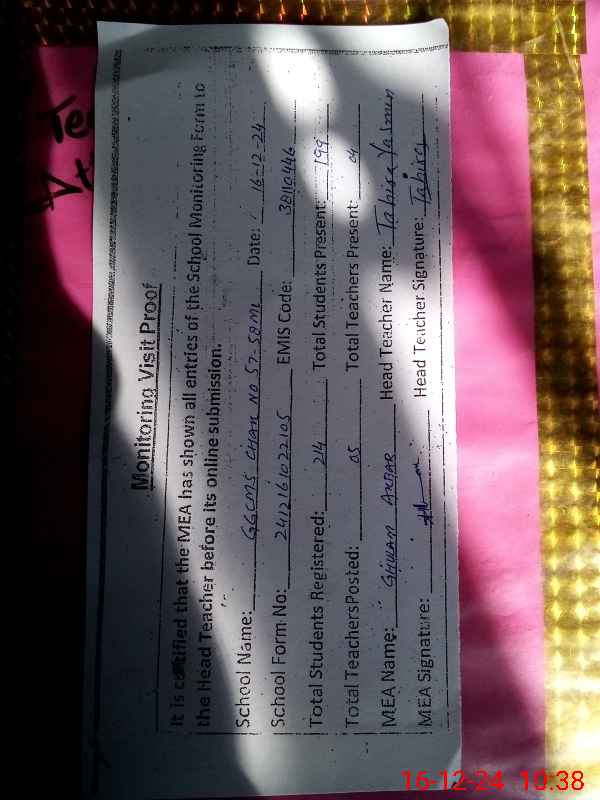 Monitoring Visit Proof
It is certified that the MEA has shown all entries of the School Monitoring Form to
the Head Teacher before its online submission.
School Name: GGCMS CHAK NO 57-58ML Date: 16-12-24
School Form No: 2412161022105 EMIS Code: 38110446
Total Students Registered: 214 Total Students Present: 199
Total TeachersPosted: 05 Total Teachers Present: 04
MEA Name: GHULAM AKBAR Head Teacher Name: Tahira Yasmin
MEA Signature: Head Teacher Signature: Tahira
16-12-24 10:38